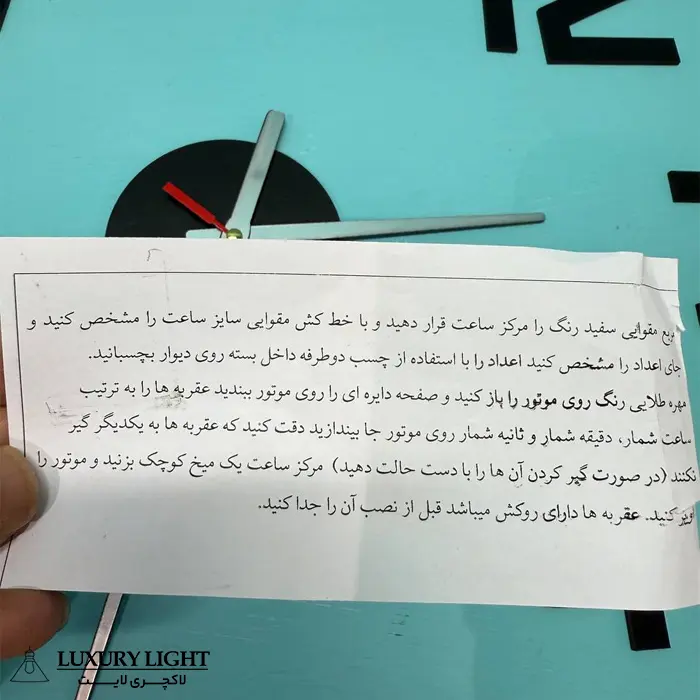 مقوایی سفید رنگ را مرکز ساعت قرار دهید و با خط کش مقوایی سایز ساعت را مشخص کنید و
جای اعداد را مشخص کنید اعداد را با استفاده از چسب دوطرفه داخل بسته روی دیوار بچسبانید.
مهره طلایی رنگ روی موتور را باز کنید و صفحه دایره ای را روی موتور ببندید عقربه ها را به ترتیب
ساعت شمار، دقیقه شمار و ثانیه شمار روی موتور جا بیندازید دقت کنید که عقربه ها به یکدیگر گیر
نکنند (در صورت گیر کردن آن ها را با دست حالت دهید) مرکز ساعت یک میخ کوچک بزنید و موتور را
کنید. عقربه ها دارای روکش میباشد قبل از نصب آن را جدا کنید.
LUXURY LIGHT
لاکچری لایت